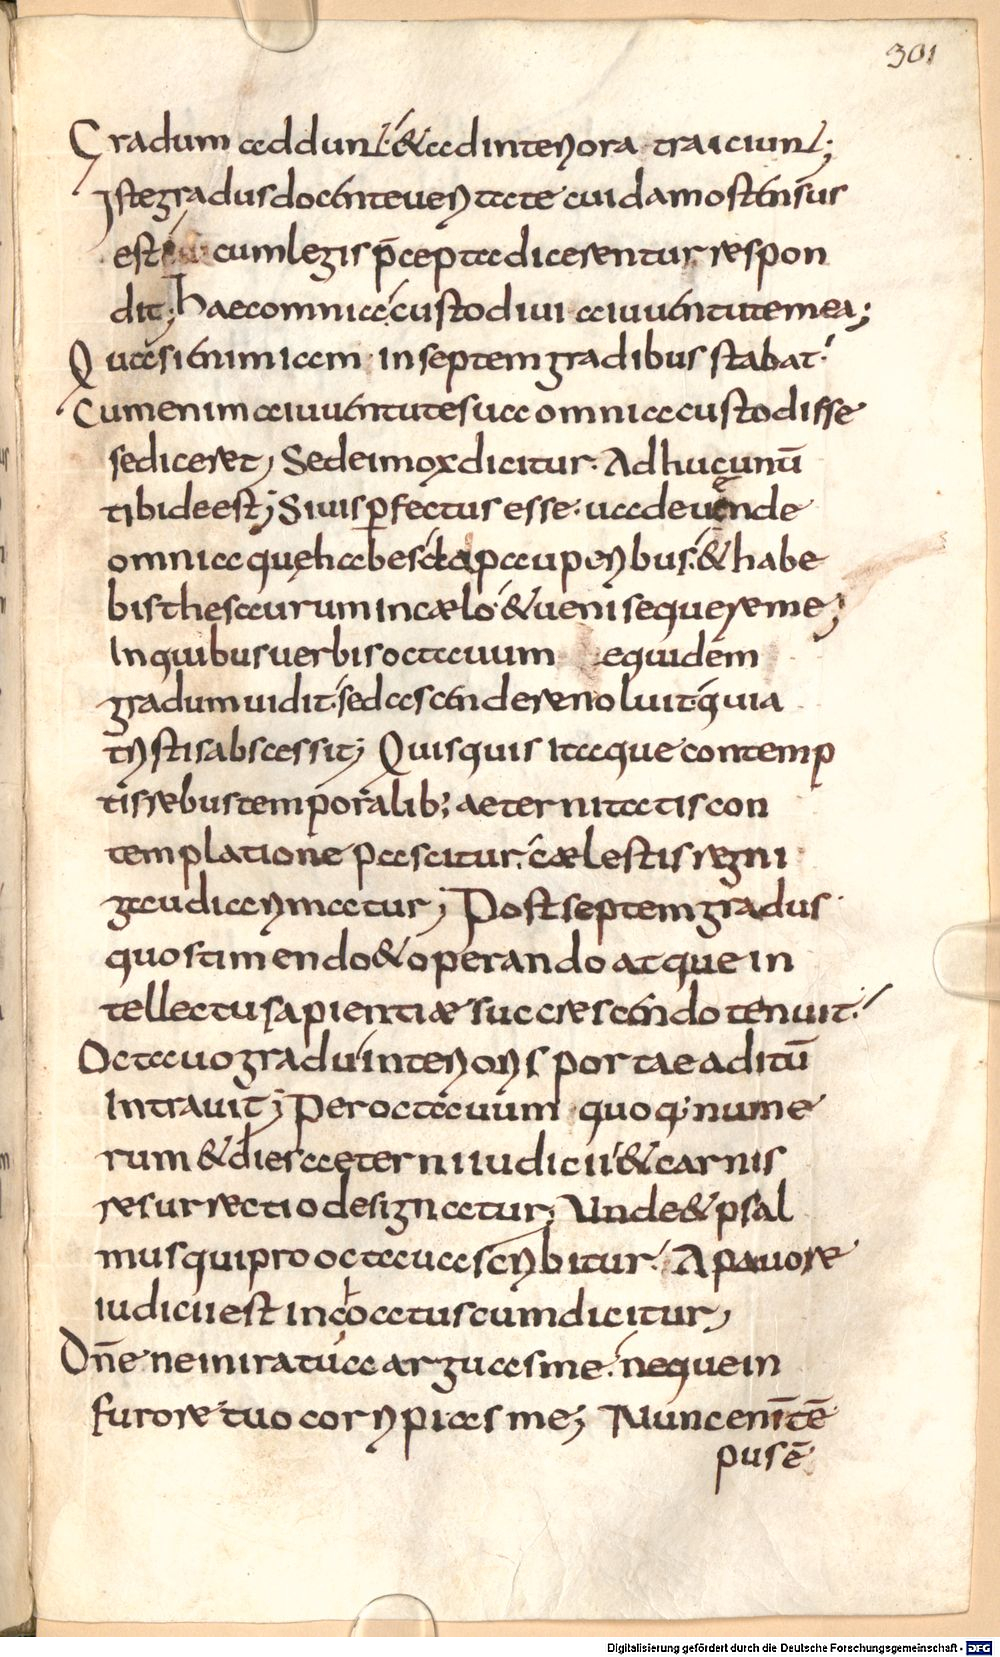 301
Gradum addunt· & ad interiora traiciunt;
Iste gradus docente veritate cuidam ostensus
est cum legis p̄cepta dicerentur respon
dit; haec omnia custodivi a iuventute mea;
Quasi enim iam in septem gradibus stabat·
Cum enim a iuuentute sua omnia custodisse
se diceret; Sed ei mox dicitur· Adhuc unū
tibi deest; Si uis ꝑfectus esse· uade uende
omnia quę habes & da pauperibus· & habe
bis thesaurum in cælo· & ueni sequere me;
In quibus uerbis octauum equidem
gradum uidit· sed ascendere noluit· quia
tristis abscessit; Quisquis itaque contemp
tis rebus temporalib; aeternitatis con
templatione pascitur· cælestis regni
gaudia rimatur; Post septem gradus
quos timendo & operando atque in
tellectu sapientiæ succrescendo tenuit·
Octauo gradu interioris portae aditū
Intrauit; Per octauum quoq; nume
rum & dies aęterni iudicii & carnis
resurrectio designatur; Unde & psal
mus qui pro octaua scribitur· A pauore
iudicii est inchoatus cum dicitur;
Dn̄e ne in ira tua arguas me· neque in
furore tuo corripias me; Nunc eni tē
pus ē
Digitalisierung gefördert durch die Deutsche Forschungsgemeinschaft - DFG